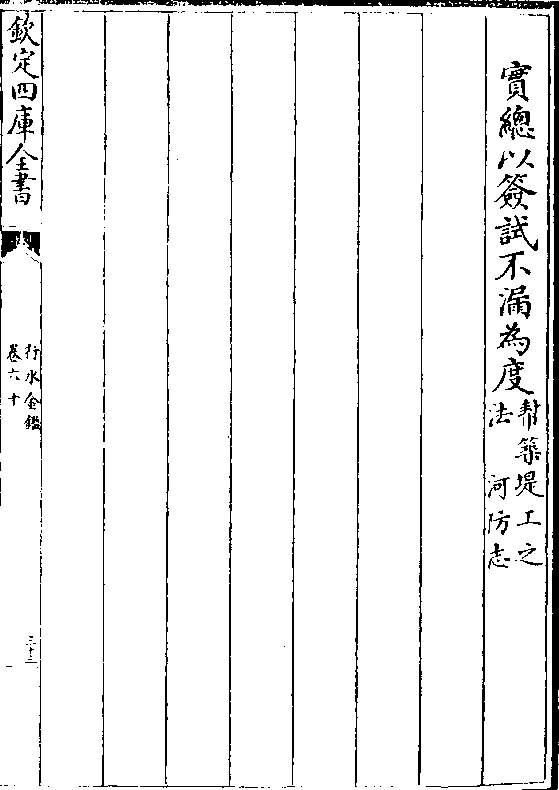 實總以簽試不漏為度幫築堤工之
法　河防志
欽定四庫全書
行水金鑑
卷六十
三十三